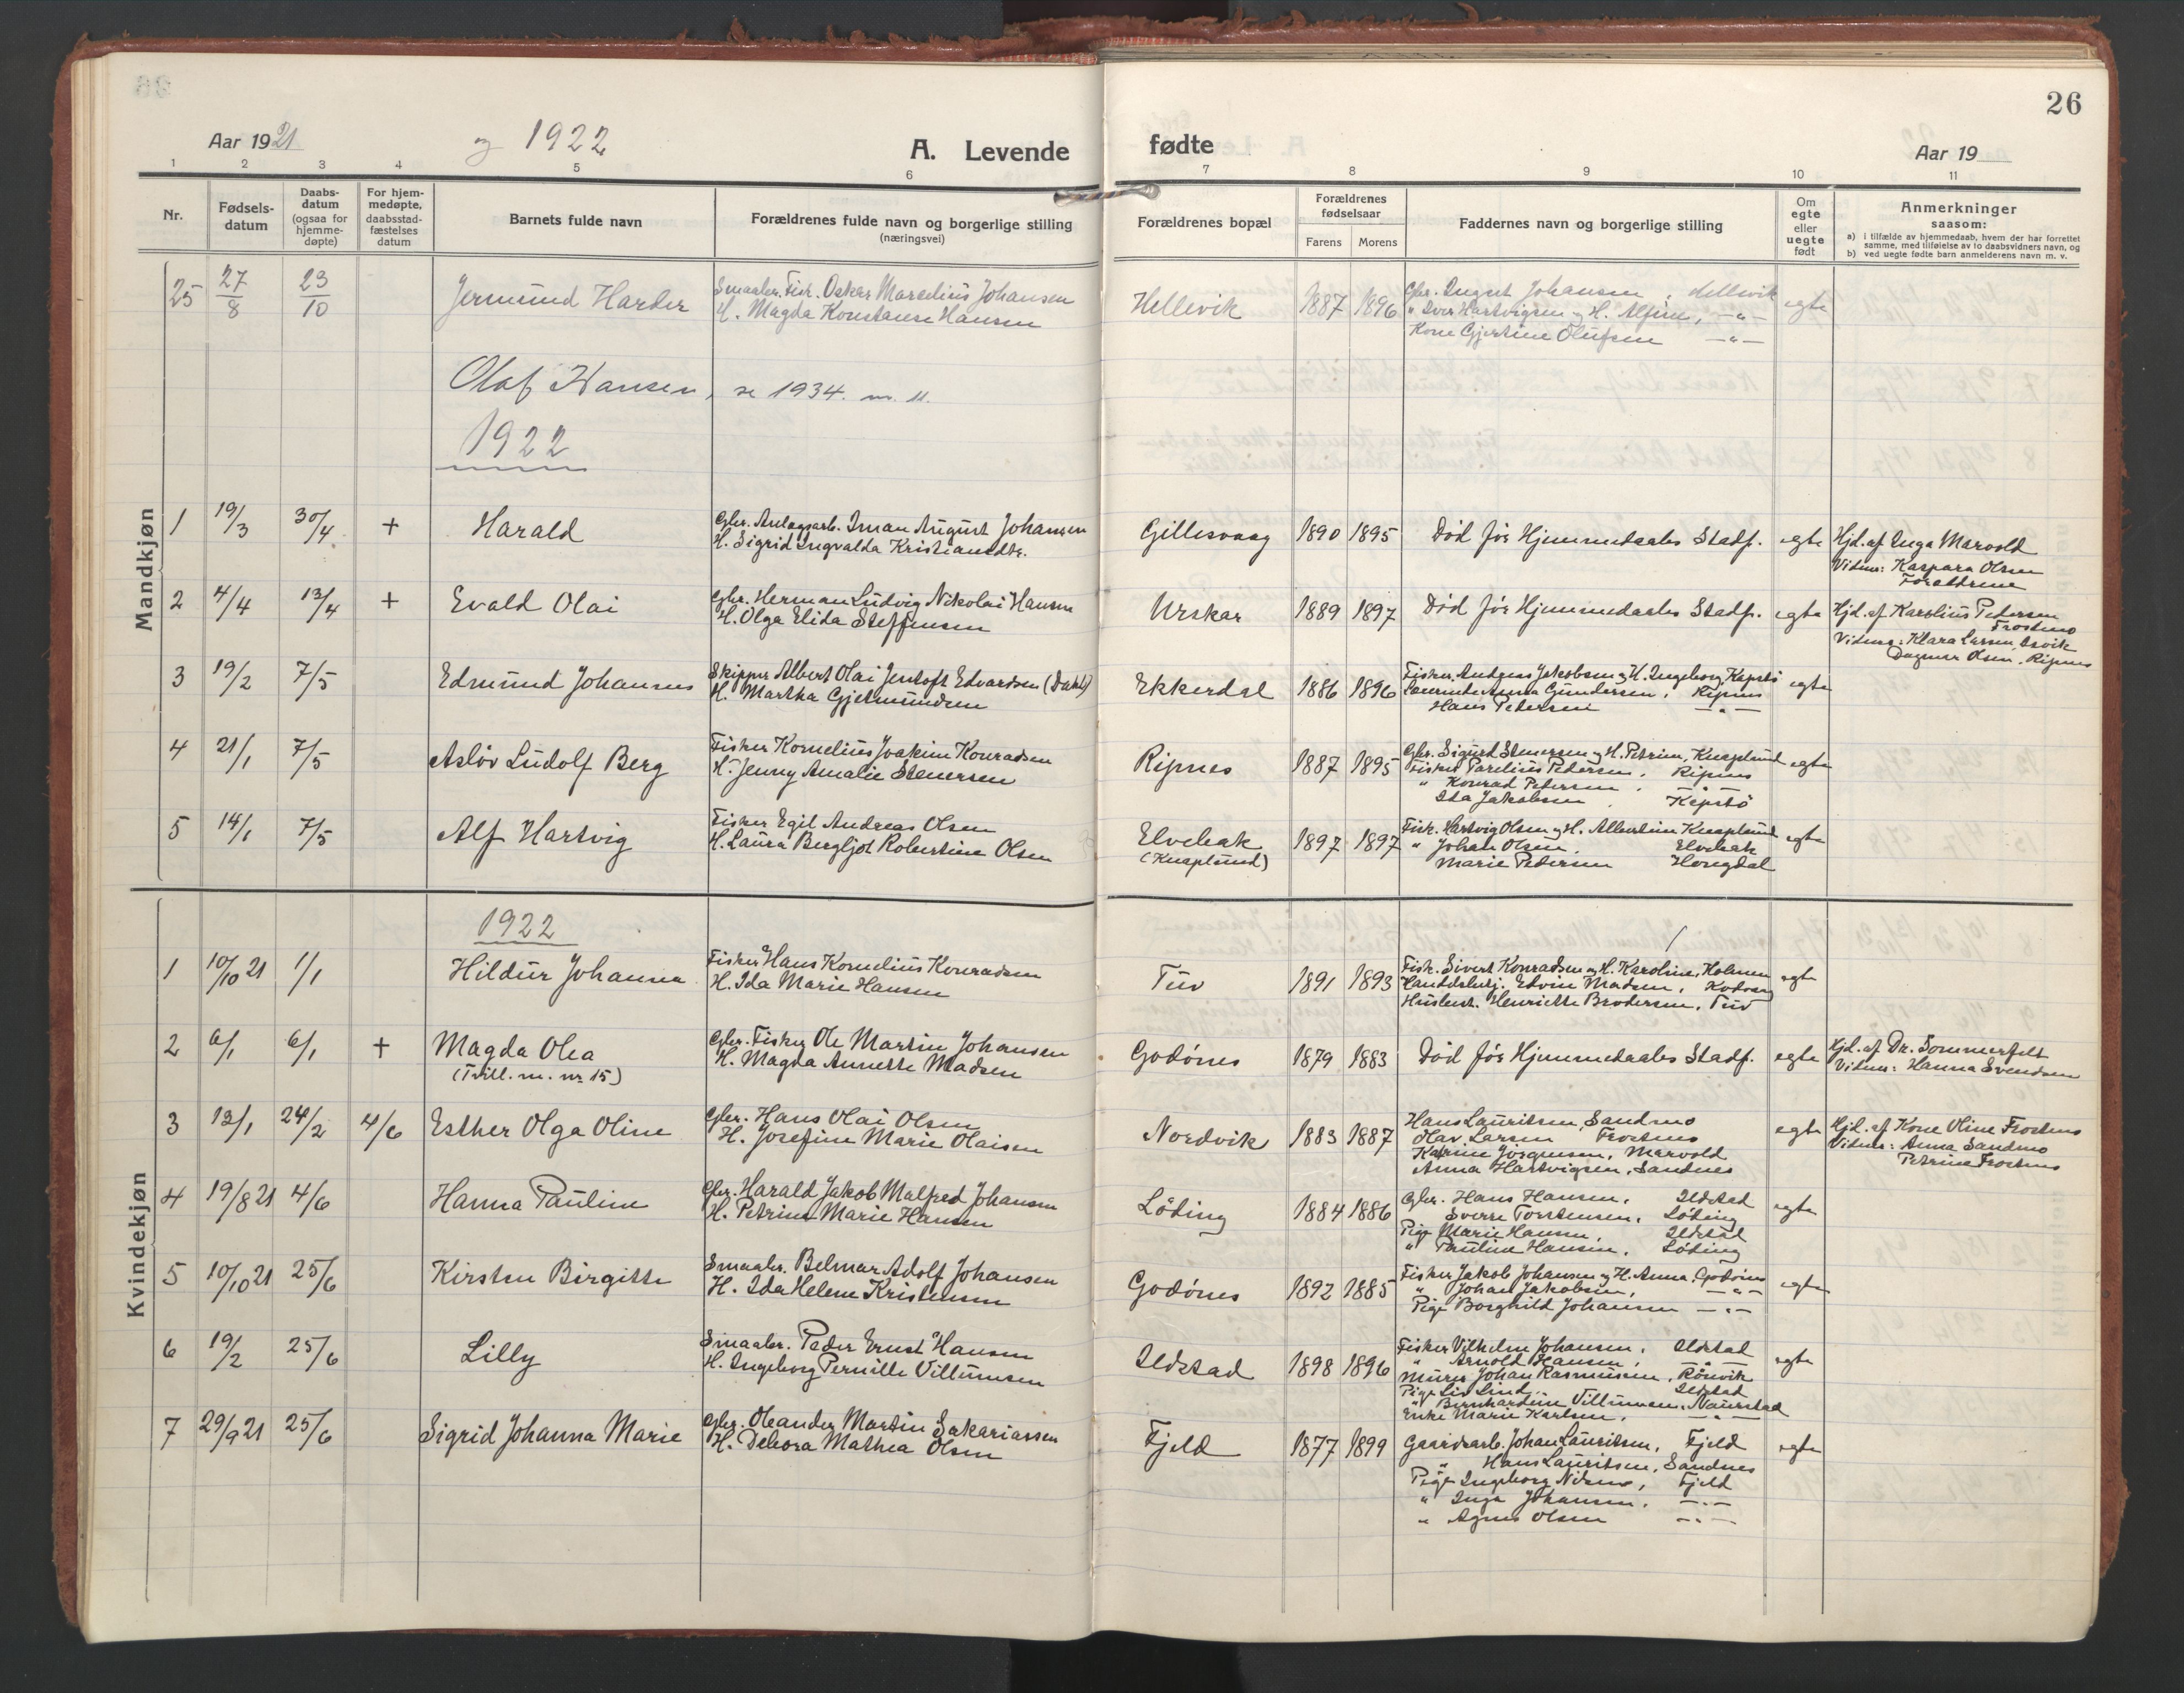 26
Aar 1921
og 1922
A. Levende
fødte
Aar 19
1 2 3 4 5 6 7 8 9 10 11
Nr.
Fødsels-
datum
Daabs-
datum
(ogsaa for
hjemme-
døpte)
For hjem-
medøpte,
daabsstad-
fæstelses
datum
Barnets fulde navn
Forældrenes fulde navn og borgerlige stilling
(næringsvei)
Forældrenes bopæl
Forældrenes
fødselsaar
Farens Morens
Faddernes navn og borgerlige stilling
Om
egte
eller
uegte
født
Anmerkninger
saasom:
a) i tilfælde av hjemmedaab, hvem der har forrettet
samme, med tilføielse av to daabsvidners navn, og
b) ved uegte fødte barn anmelderens navn m. v.
Mandkjøn
25 27/8 23/10 Jermund Harder
Smaabr. Fisk. Oskar Maredius Johansen
H. Magda Konstanse Hansen
Hellevik 1887 1896
Gbr. Johansen, Hellevik
" Iver Hartvigsen og H. Alfine, —"—
Kone Gjertine Olufsen —"—
egte
Olaf Hansen, se 1934. nr. 11.
1922
1 19/3 30/4 + Harald
Gbr. Anlægsarb. Iman August Johansen
H. Sigrid Ingvalda Kristiansdtr.
Gillesvaag 1890 1895
Død før Hjemmedaabs Stadf. egte
Hjd. af Inga Marvold
Vidner: Kaspara Olsen
Forældrene
2 4/4 13/4 + Evald Olai
Gbr. Herman Ludvig Nikolai Hansen
H. Olga Elida Steffensen
Urskar 1889 1897
Død før Hjemmedaabs Stadf. egte
Hjd. af Karolius Petersen
Frostmo
Vidner: Klara Larsen,
Dagmar Olsen, Ripnes
3 19/2 7/5 Edmund Johannes
Skipper Albert Olai Jentoft Edvardsen (Dahl)
H. Martha Gjelmundsen
Ekkerdal 1886 1896
Fisker Andreas Jakobsen og H. Ingeborg, Kapstø
Anna Gundersen, Ripnes
Hans Petersen —"—
egte
4 21/1 7/5 Asløv Ludolf Berg
Fisker Kornelius Joakim Konradsen
H. Jenny Amalie Stenersen
Ripnes 1887 1895
Gbr. Sigurd Stenersen og H. Petrine, Knaplund
Fisker Parelius Pedersen, Ripnes
" Konrad Petersen, —"—
Ida Jakobsen, Kapstø
egte
5 14/1 7/5 Alf Hartvig
Fisker Egil Andreas Olsen
H. Laura Bergljot Robertine Olsen
Elvebak
(Knaplund)
1897 1897
Fisk. Hartvig Olsen og H. Albertine Knaplund
" Johan Olsen, Elvebak
Marie Pedersen Hongdal
egte
Kvindekjøn
1922
1 10/10 21 1/1 Hildur Johanna
Fisker Hans Kornelius Konradsen
H. Ida Marie Hansen
Tuv 1891 1893
Fisk. Sivert Konradsen og H. Karoline, Holmen
Handelsbetj. Edvin Madsen, Kodvaag
Husbest. Henriette Brodersen, Tuv
egte
2 6/1 6/1 + Magda Olea
(Tvill. m. nr 15)
Gbr. Fisker Ole Martin Johansen
H. Magda Annette Madsen
Godønes 1879 1883
Død før Hjemmedaabs Stadf. egte
Hjd. af Dr. Sommerfelt
Vidner: Hanna Svendsen
3 13/1 24/2 4/6 Esther Olga Oline
Gbr. Hans Olai Olsen
H. Josefine Marie Olaisen
Nordvik 1883 1887
Hans Lauritsen, Sandmo
Olav Larsen Frostnes
Katrine Jørgensen, Marvold
Anna Hartvigsen, Sandnes
egte
Hjd. af Kone Oline Frostnes
Vidner: Anna Sandmo
Petrine Frostnes
4 19/8 21 4/6 Hanna Pauline
Gbr. Harald Jakob Malfred Johansen
H. Petrine Marie Hansen
Løding 1884 1886
Gbr. Hans Hansen, Ildstad
Sverre Torstensen, Løding
Pige Marie Hansen, Ildstad
" Pauline Hansen, Løding
egte
5 10/10 21 25/6 Kirsten Birgitte
Smaabr. Belmar Adolf Johansen
H. Ida Helene Kristensen
Godønes 1892 1885
Fisker Jakob Johansen og H. Anna, Godønes
" Johan Jakobsen, —"—
Pige Borghild Johansen —"—
egte
6 19/2 25/6 Lilly
Smaabr. Peder Ernst Hansen
H. Ingeborg Pernille Villumsen
Ildstad 1898 1896
Fisker Vilhelm Johansen, Ildstad
" Arnold Hansen, —"—
Murer Johan Rasmussen, Rønvik
Pige Liv Lind, Ildstad
" Bernhardine Villumsen, Naurstad
Enke Marie Karlsen, —"—
egte
7 29/9 21 25/6 Sigrid Johanna Marie
Gbr. Oleander Martin Sakariassen
H. Debora Mathea Olsen
Fjeld 1877 1899
Gaardsarb. Johan Lauritsen, Fjeld
" Hans Lauritsen, Sandnes
Pige Ingeborg Nilsen, Fjeld
" Inga Johansen, —"—
" Agnes Olsen —"—
egte